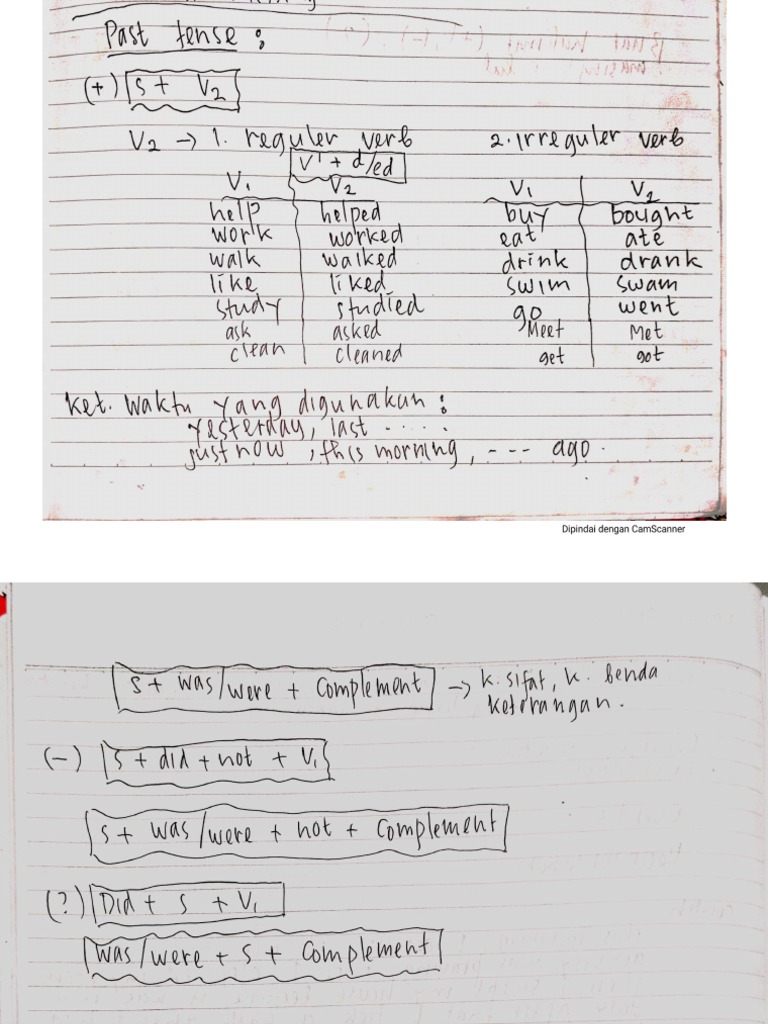 Past tense :
(+) S + V2
V2 → 1. reguler verb 2. Irreguler verb
V1 + d/ed
V1 V2 V1 V2
help helped buy bought
work worked eat ate
walk walked drink drank
like liked swim swam
study studied go went
ask asked Meet Met
clean cleaned get got
Ket. Waktu yang digunakan :
yesterday, last .....
just now, this morning, --- ago.
Dipindai dengan CamScanner
S + was/were + complement → k. sifat, k. benda
keterangan.
(-) S + did + not + V1
S + was/were + not + complement
(?) Did + S + V1
was/were + S + complement